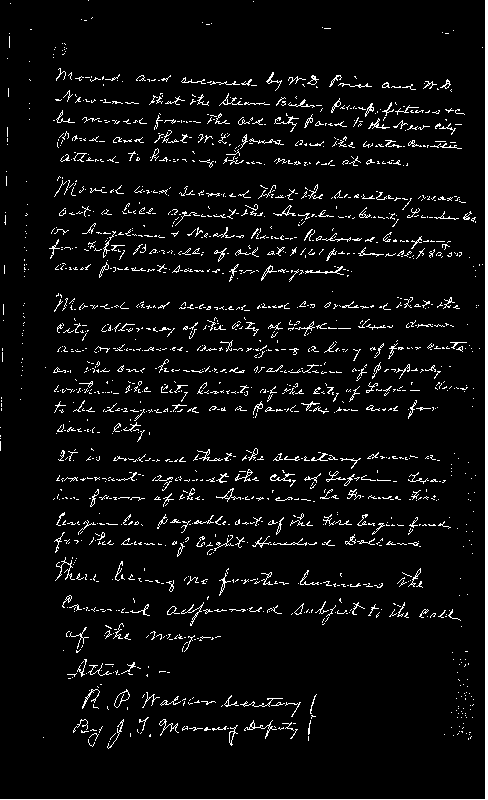 Moved and seconed by W.D. Price and W.D.
Newsom that the Steam Boiler, pump, fixtures &c
be moved from the old City Pond to the New City
Pond and that W.L. Jones and the water Comittee
attend to having them moved at once.
Moved and seconed that the secretary make
out a bill against the Angelina County Lumber Co.
or Angelina & Neches River Railroad Company
for Fifty Barrells of oil at $1.61 per barrell $80.50
and present same for payment.
Moved and seconed and so ordered that the
City Attorney of the City of Lufkin Texas draw
an ordinance authorizing a levy of four cents
on the one hundreds valuation of property
within the City limits of the City of Lufkin Texas
to be designated as a Pond tax in and for
said City.
It is ordered that the secretary draw a
warrant against the City of Lufkin Texas
in favor of the American La France Fire
Engin Co. payable out of the Fire Engin fund
for the sum of Eight Hundred Dollars.
There being no further business the
Council adjourned subject to the call
of the mayor
Attest:-
R. P. Walker Secretary
By J. T. Maroney Deputy